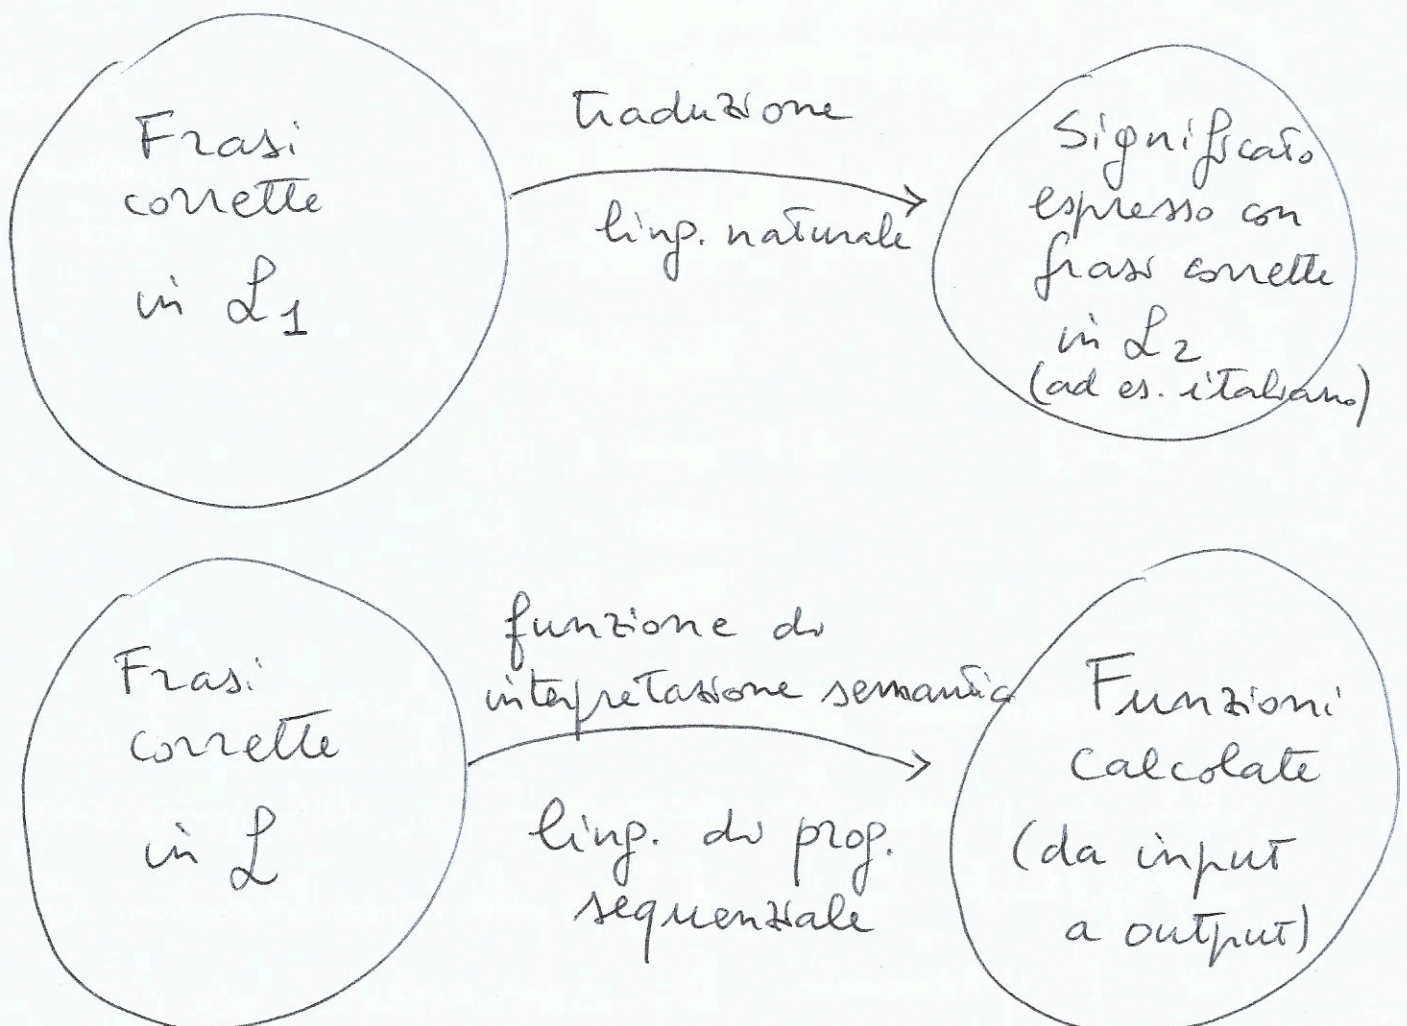 Frasi
corrette
in L1
traduzione
ling. naturale
Significato
espresso con
frasi corrette
in L2
(ad es. italiano)
Frasi
corrette
in L
funzione di
interpretazione semantica
ling. di prog.
sequenziale
Funzioni
calcolate
(da input
a output)